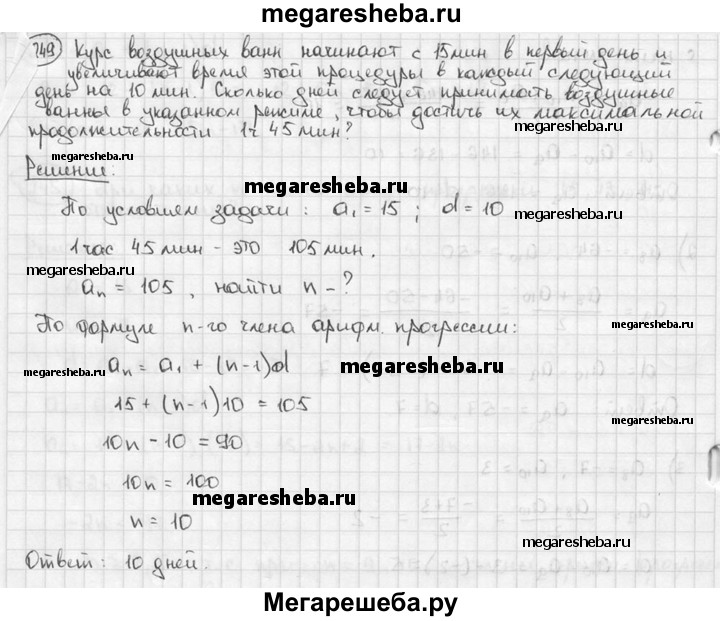 megaresheba.ru
249 Курс воздушных ванн начинают с 15 мин в первый день и
увеличивают время этой процедуры в каждый следующий
день на 10 мин. Сколько дней следует принимать воздушные
ванны в указанном режиме, чтобы достичь их максимальной
megaresheba.ru
продолжительности 1ч 45 мин?
megaresheba.ru
megaresheba.ru
Решение:
megaresheba.ru
По условиям задачи: a₁ = 15 ; d = 10
megaresheba.ru
1 час 45 мин - это 105 мин.
megaresheba.ru
aₙ = 105 , найти n - ?
По формуле n-го члена арифм. прогрессии:
megaresheba.ru
aₙ = a₁ + (n-1)d
megaresheba.ru
megaresheba.ru
15 + (n-1)10 = 105
megaresheba.ru
10n - 10 = 90
10n = 100
megaresheba.ru
n = 10
megaresheba.ru
Ответ: 10 дней.
Мегарешеба.ру